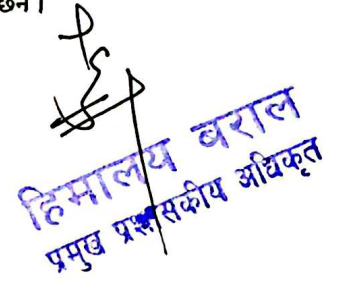 छन।
हिमालय बराल
प्रमुख प्रशासकीय अधिकृत